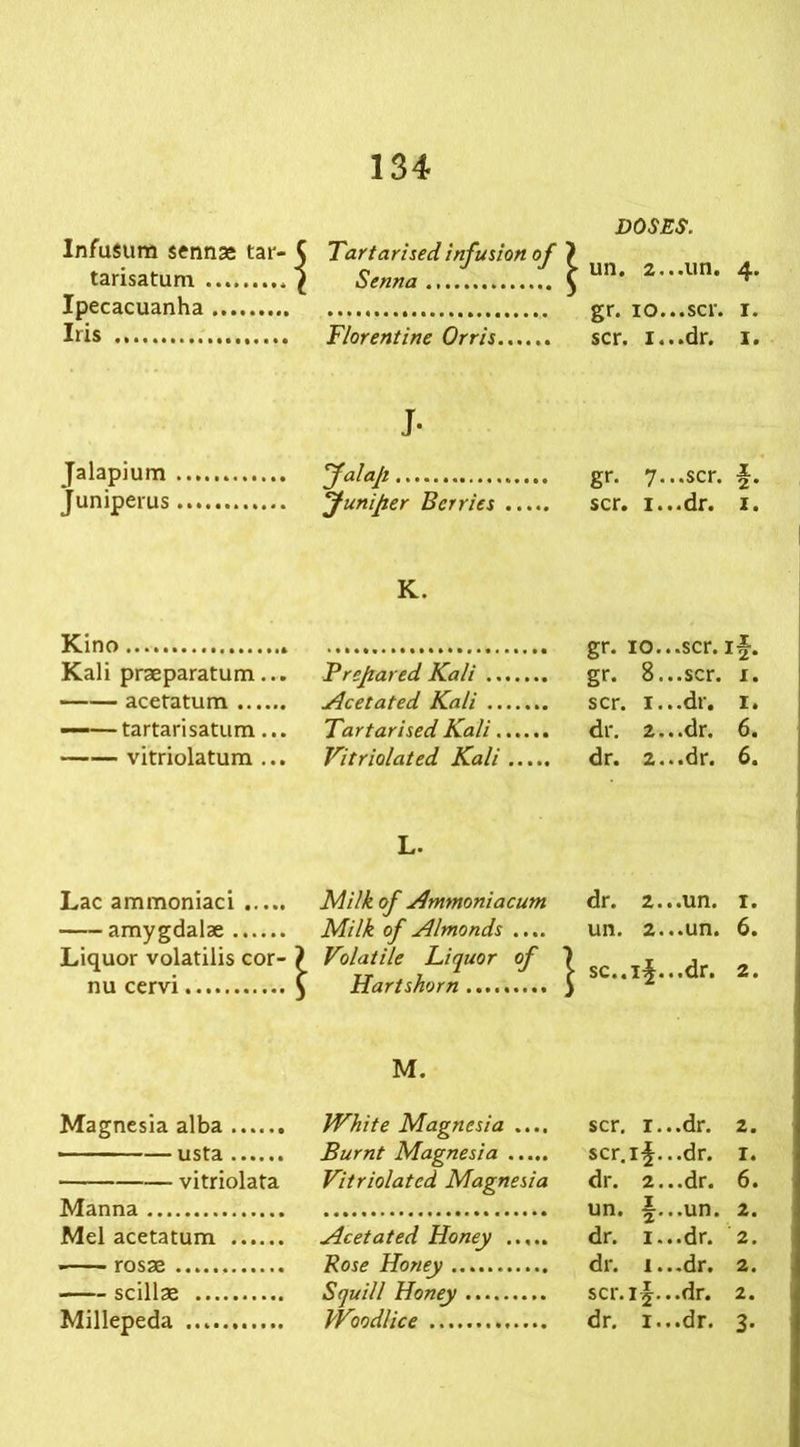 134
DOSES.
Infusum sennæ tar- { Tartarised infusion of }
tarisatum ......... { Senna .............. } un. 2...un. 4.
Ipecacuanha ......... ......................... gr. 10...scr. 1.
Iris .................... Florentine Orris...... scr. 1...dr. 1.
J.
Jalapium ............ Jalap ..................... gr. 7...scr. ½.
Juniperus ............ Juniper Berries ..... scr. 1...dr. 1.
K.
Kino .................... ......................... gr. 10...scr. 1½.
Kali præparatum ... Prepared Kali ........ gr. 8...scr. 1.
—— acetatum ...... Acetated Kali ........ scr. 1...dr. 1.
—— tartarisatum ... Tartarised Kali ...... dr. 2...dr. 6.
—— vitriolatum ... Vitriolated Kali ..... dr. 2...dr. 6.
L.
Lac ammoniaci ..... Milk of Ammoniacum dr. 2...un. 1.
—— amygdalæ ...... Milk of Almonds .... un. 2...un. 6.
Liquor volatilis cor- } Volatile Liquor of }
nu cervi ............ } Hartshorn .......... } sc..1½...dr. 2.
M.
Magnesia alba ...... White Magnesia .... scr. 1...dr. 2.
———— usta ...... Burnt Magnesia ..... scr.1½...dr. 1.
———— vitriolata Vitriolated Magnesia dr. 2...dr. 6.
Manna ............... ......................... un. ½...un. 2.
Mel acetatum ...... Acetated Honey ..... dr. 1...dr. 2.
—— rosæ ............ Rose Honey ........... dr. 1...dr. 2.
—— scillæ .......... Squill Honey ......... scr.1½...dr. 2.
Millepeda ............ Woodlice ............. dr. 1...dr. 3.